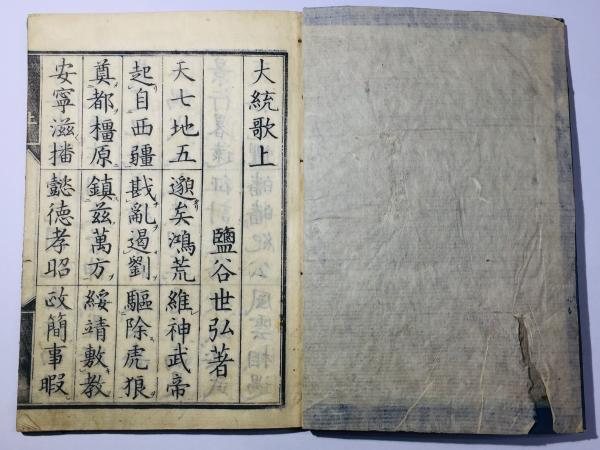 大統歌上
鹽谷世弘著
天七地五 邈矣鴻荒 維神武帝
起自西疆 戡亂遏劉 驅除虎狼
奠都橿原 鎮茲萬方 綏靖敷教
安寧滋播 懿德孝昭 政簡事暇